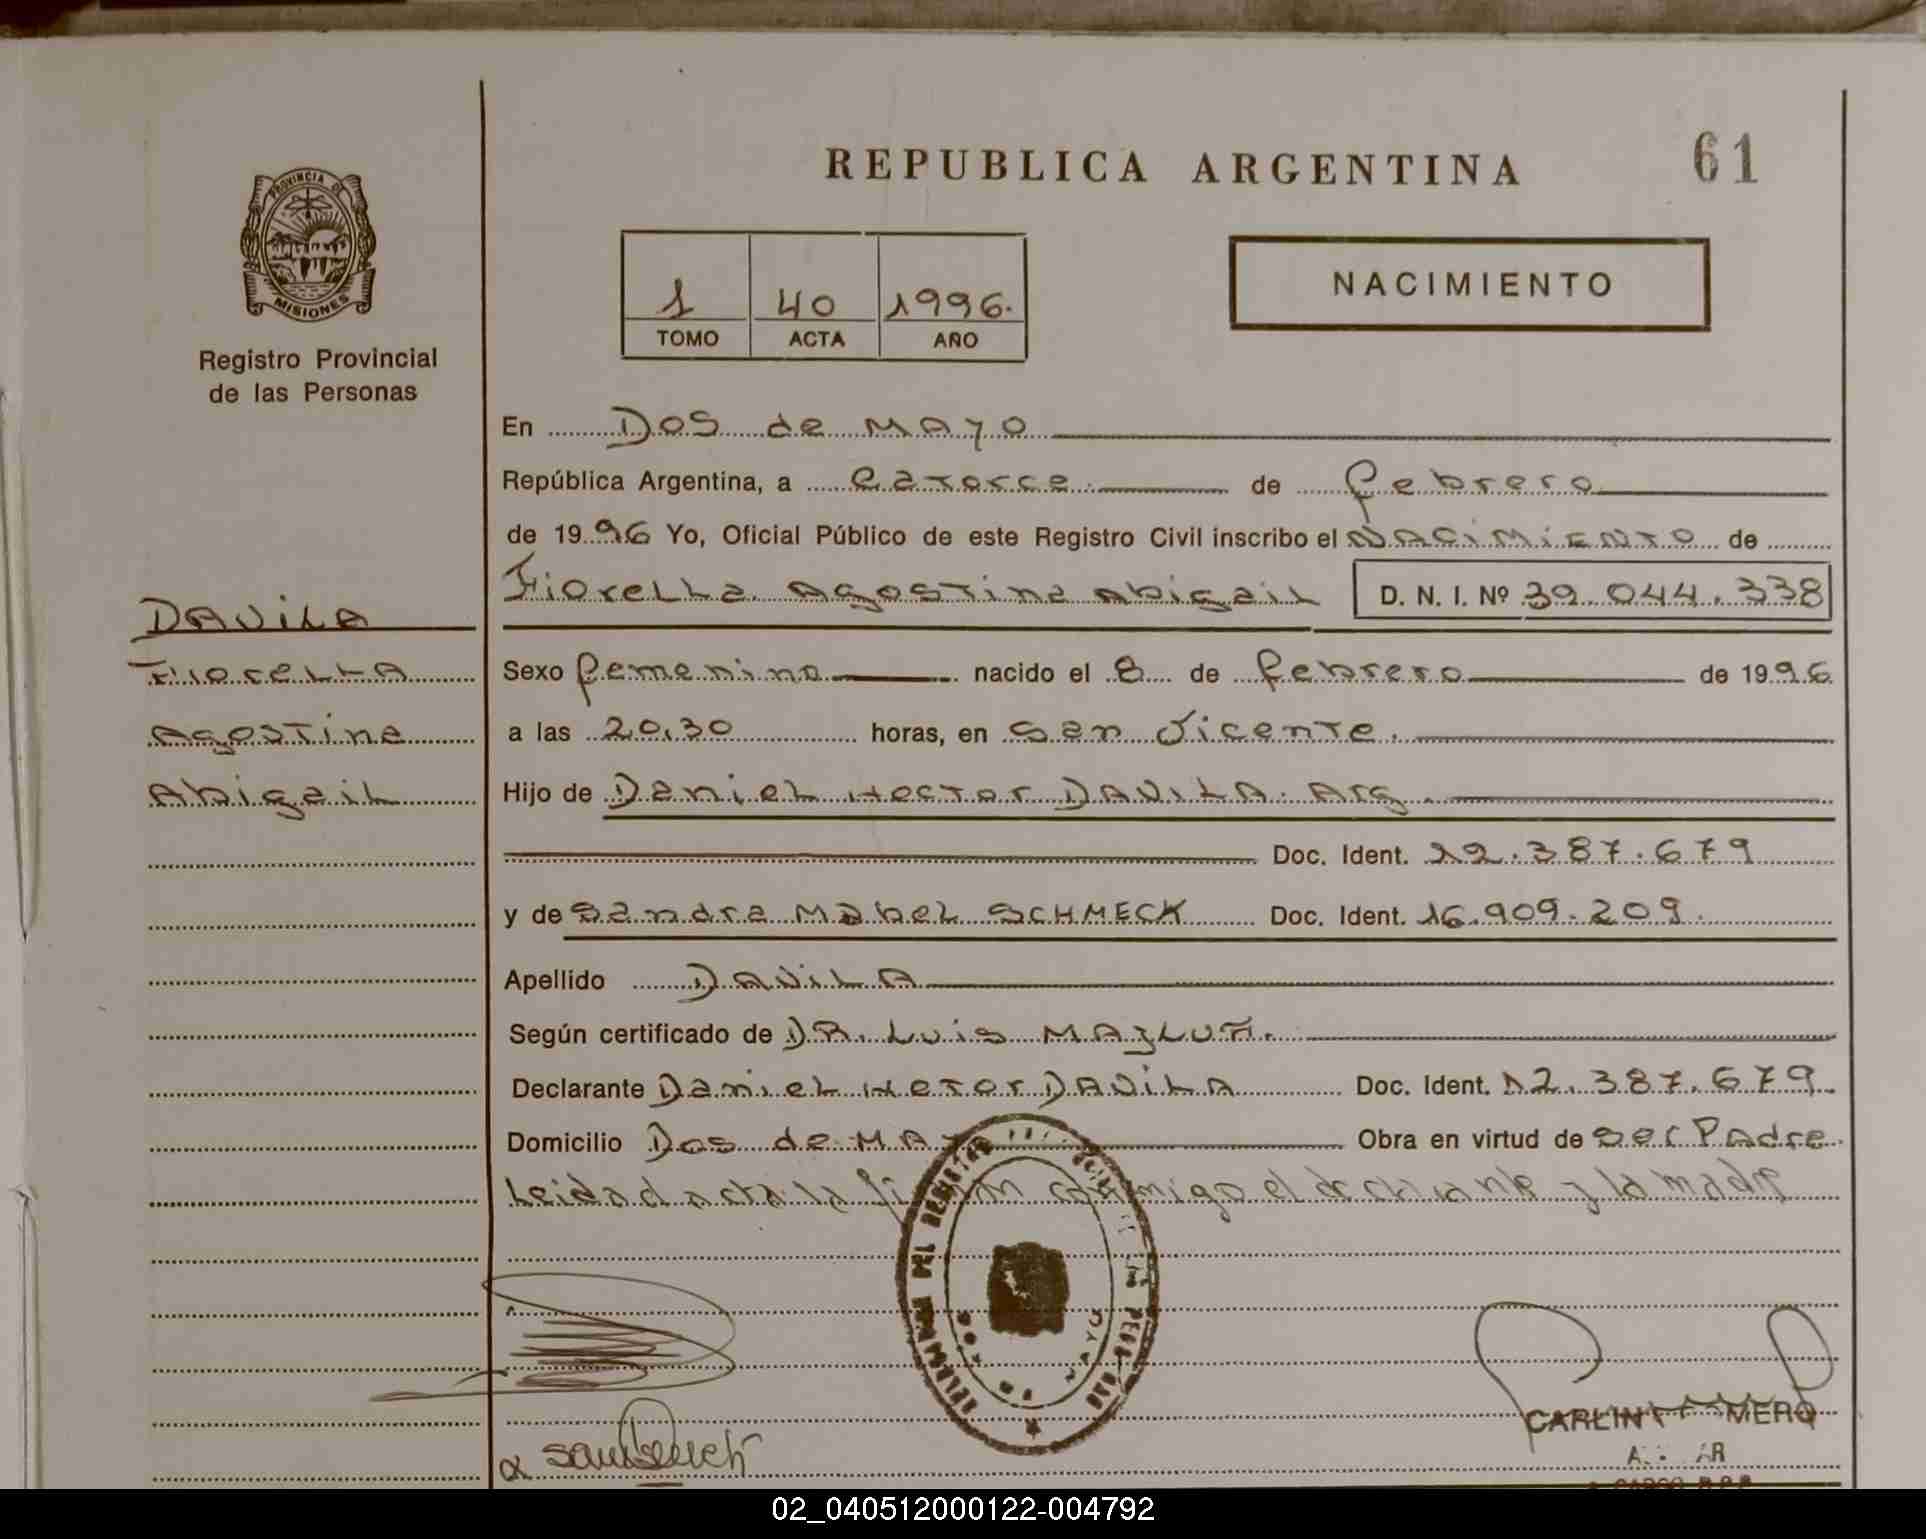 REPUBLICA ARGENTINA
61
PROVINCIA DE
MISIONES
Registro Provincial
de las Personas
1 40 1996.
TOMO ACTA AÑO
NACIMIENTO
En Dos de MAYO
República Argentina, a Catorce de febrero
de 1996 Yo, Oficial Público de este Registro Civil inscribo el NACIMIENTO de
Fiorella Agostina Abigail D. N. I. Nº 39.044.338
DAVILA
Fiorella
Agostina
Abigail
Sexo femenino nacido el 8 de febrero de 1996
a las 20,30 horas, en San Vicente.
Hijo de Daniel Hector DAVILA. Arg.
Doc. Ident. 12.387.679
y de Sandra Mabel SCHMECK Doc. Ident. 16.909.209.
Apellido DAVILA
Según certificado de DR. Luis
Declarante Daniel Hetor DAVILA Doc. Ident. 12.387.679
Domicilio Dos de MAY Obra en virtud de ser Padre
Leida el acta la firman conmigo el declarante y la madre
DEL REGISTRO
CARLIN MERO
02_040512000122-004792